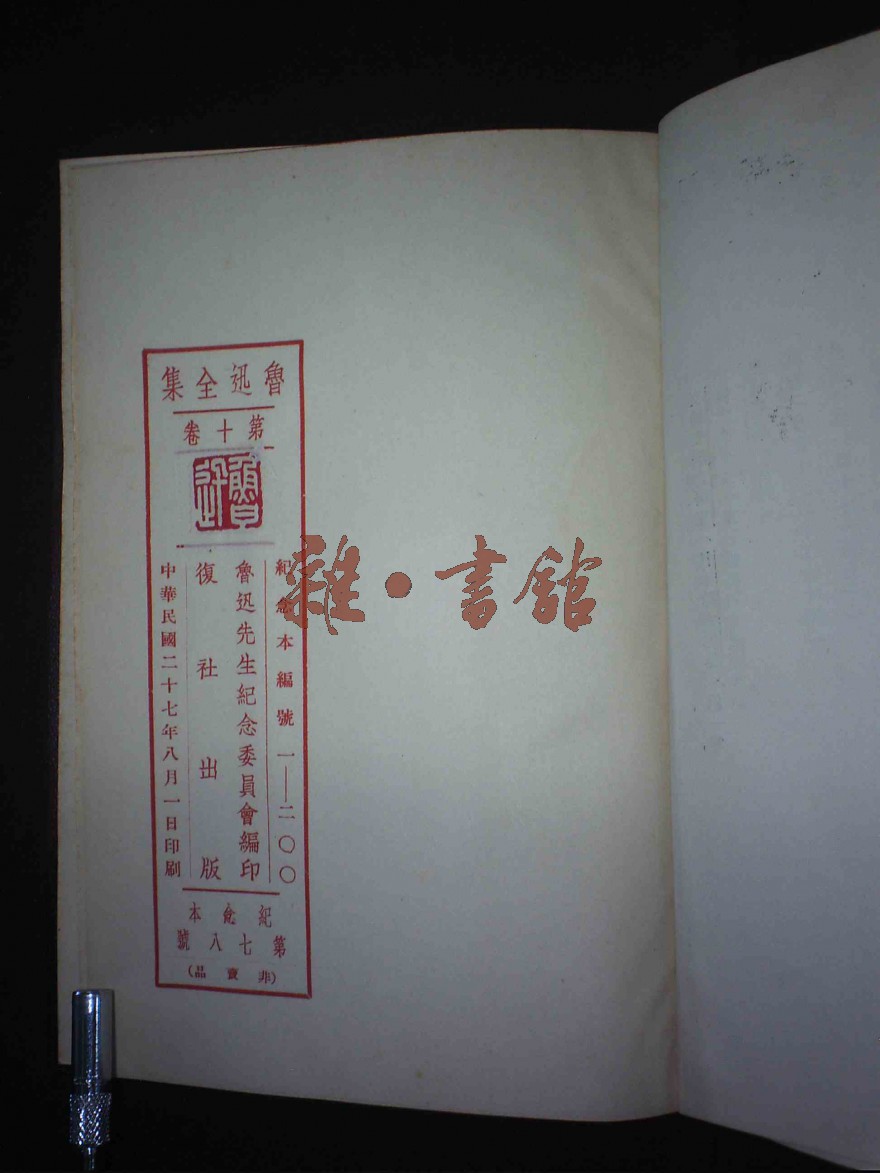 魯迅全集
第十卷
魯迅
紀念本編號 一——二〇〇
魯迅先生紀念委員會編印
復社出版
中華民國二十七年八月一日印刷
紀念本
第七八號
(非賣品)
雜·書館